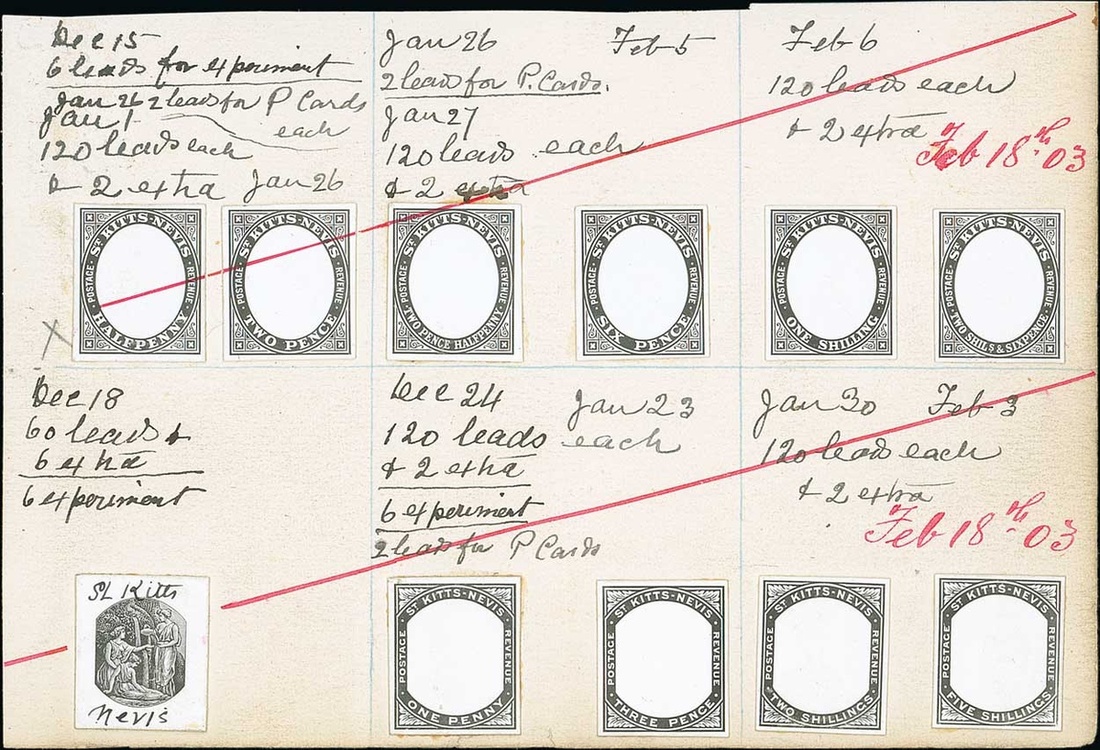 Dec 15
6 leads for experiment
Jan 26 2 leads for P Cards
each
Jan 1
120 leads each
& 2 extra Jan 26
Jan 26 Feb 5
2 leads for P. Cards.
Jan 27
120 leads each
& 2 extra
Feb 6
120 leads each
& 2 extra
Feb 18th 03
ST KITTS-NEVIS
POSTAGE REVENUE
HALFPENNY
ST KITTS-NEVIS
POSTAGE REVENUE
TWO PENCE
ST KITTS-NEVIS
POSTAGE REVENUE
TWO PENCE HALFPENNY
ST KITTS-NEVIS
POSTAGE REVENUE
SIX PENCE
ST KITTS-NEVIS
POSTAGE REVENUE
ONE SHILLING
ST KITTS-NEVIS
POSTAGE REVENUE
TWO SHILS & SIXPENCE
X
Dec 18
60 leads &
6 extra
6 experiment
Dec 24 Jan 23
120 leads each
& 2 extra
6 experiment
2 leads for P Cards
Jan 30 Feb 3
120 leads each
& 2 extra
Feb 18th 03
St Kitts
Nevis
ST KITTS-NEVIS
POSTAGE REVENUE
ONE PENNY
ST KITTS-NEVIS
POSTAGE REVENUE
THREE PENCE
ST KITTS-NEVIS
POSTAGE REVENUE
TWO SHILLINGS
ST KITTS-NEVIS
POSTAGE REVENUE
FIVE SHILLINGS